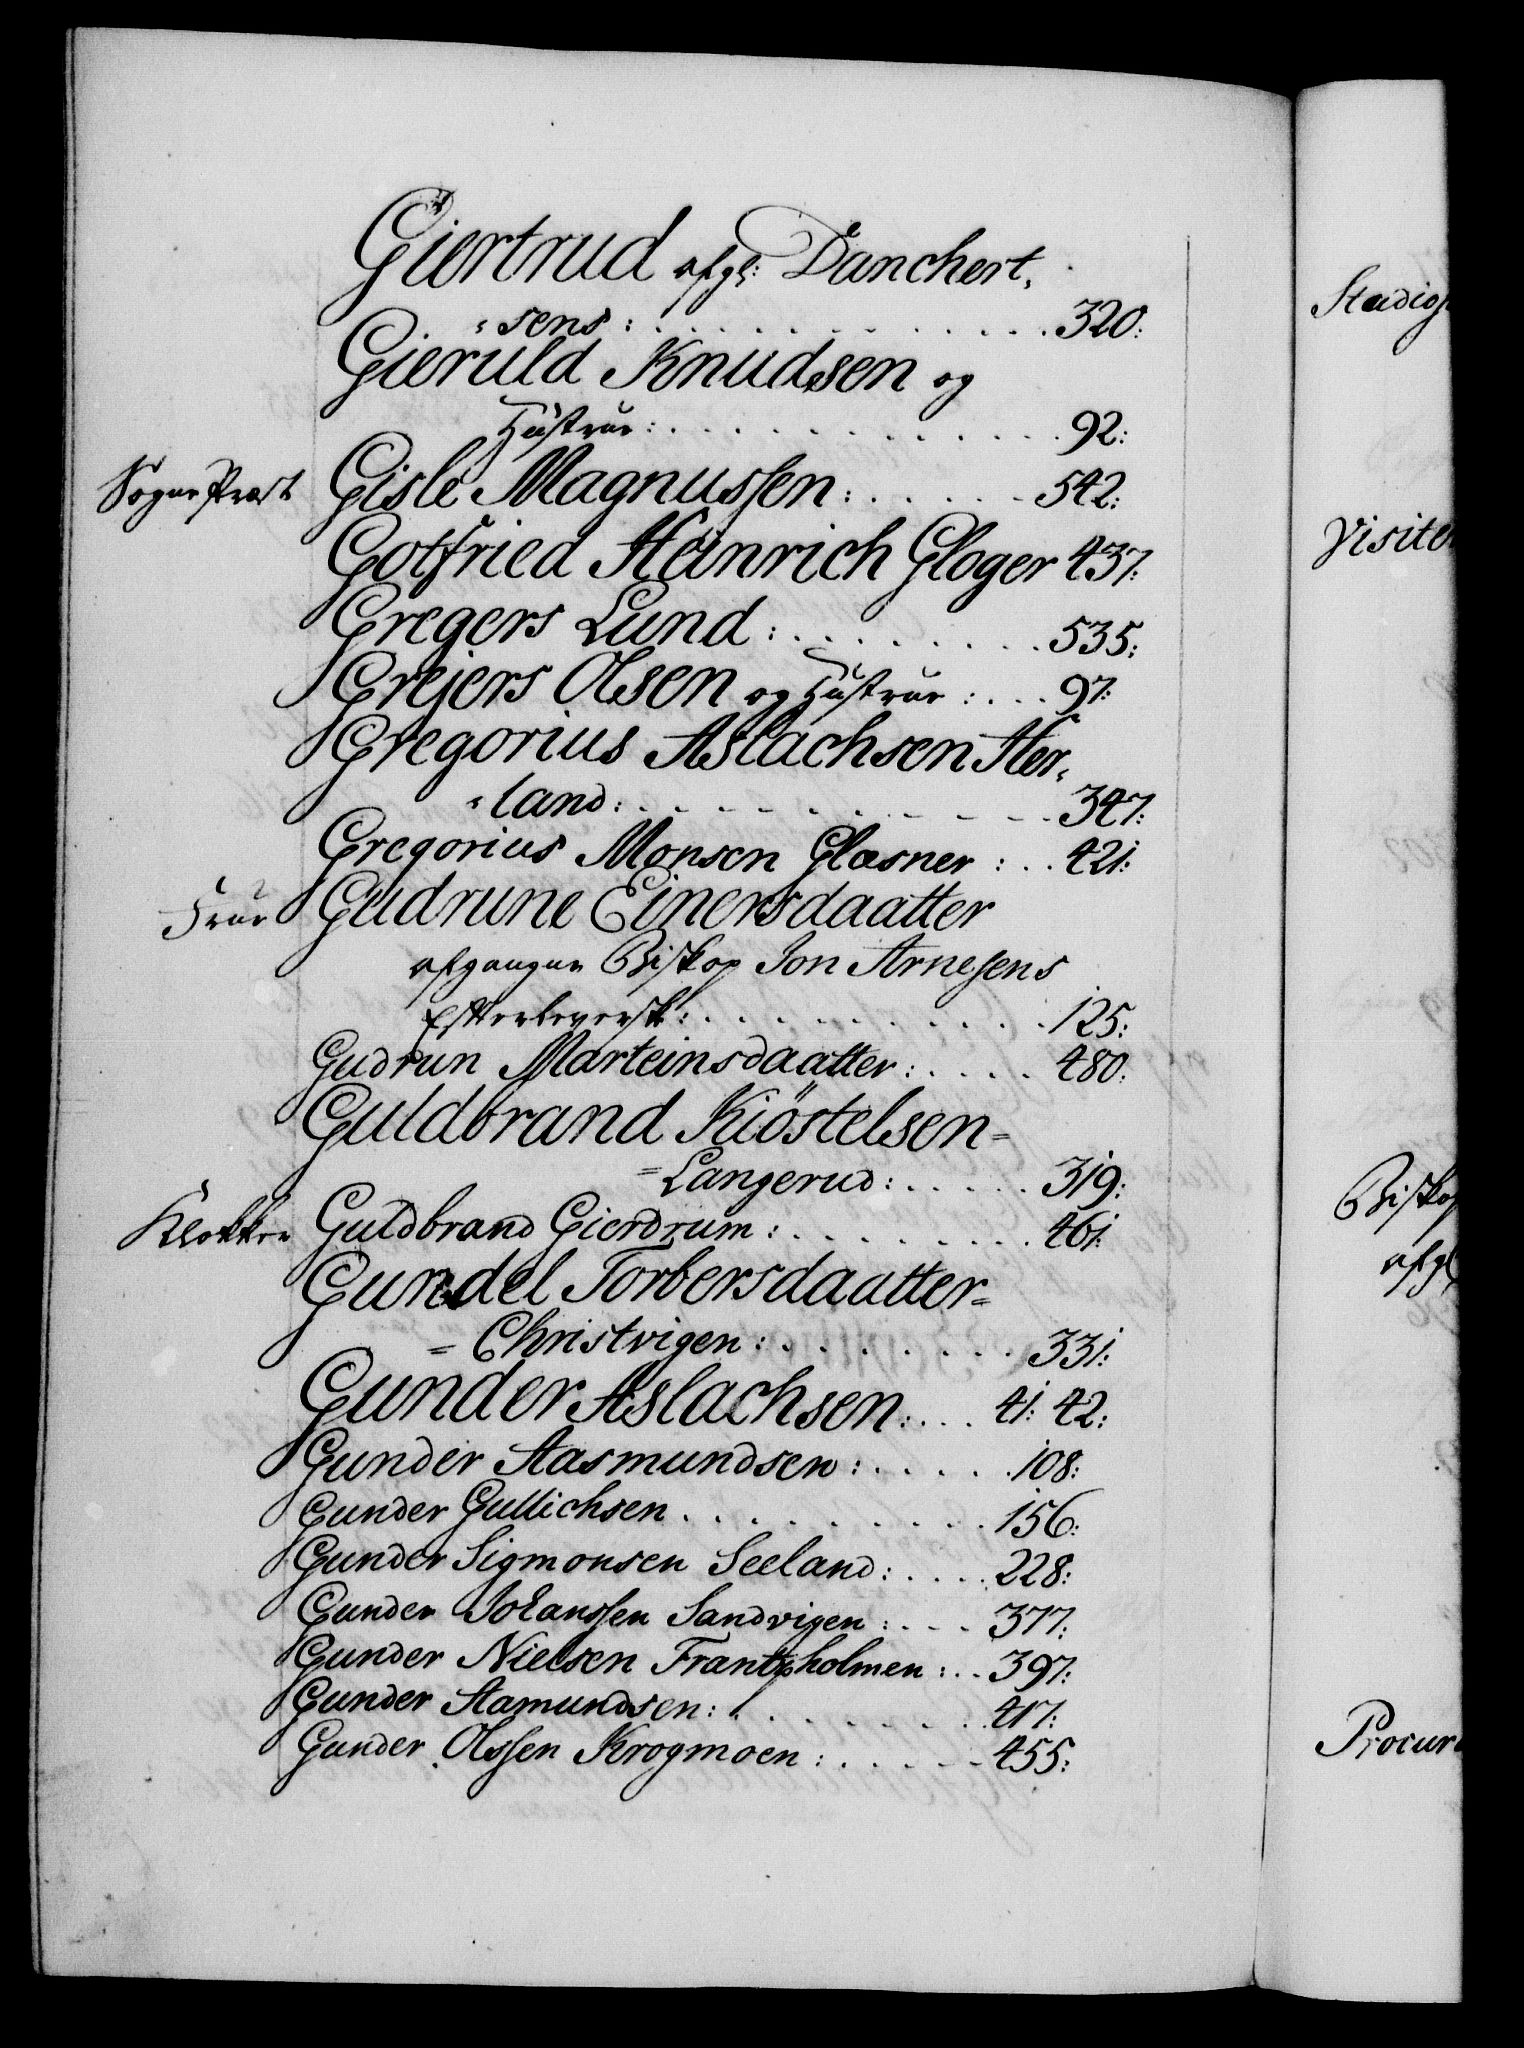 Giertrud afgl: Danchert,
"sens: . . . . . . . . . . . . . 320:
Gieruld Knudsen og
Hustrue: . . . . . . . . . . . . . 92:
Sogne Præst Gisle Magnussen: . . . . . . 542:
Gotfried Heinrich Gloger 437:
Gregers Lund: . . . . . . . . . 535:
Grejers Olsen og Hustrue: . . . 97:
Gregorius Aslachsen Her,
"land: . . . . . . . . . . . . . 347:
Gregorius Monsen Glasner: . . 421:
Frue Gudrune Einersdaatter
afgangne Biskop Jon Arnesens
Efterleversk: . . . . . . . . . . . 125:
Gudrun Marteinsdaatter: . . . . 480:
Guldbrand Kiöstelsen=
=Langerud: . . . . . 319:
Klokker Guldbrand Gierdrum: . . . . . . . . 461:
Gundel Torbersdaatter=
=Christvigen: . . . . . . . . 331:
Gunder Aslachsen: . . . 41: 42:
Gunder Aasmundsen: . . . . . 108:
Gunder Gullichsen . . . . . . . . . . 156:
Gunder Sigmonsen Seeland: . . . . 228:
Gunder Johanssen Sandvigen: . . . 377:
Gunder Nielsen Frantzholmen: . . 397:
Gunder Aamundsen: . . . . . . . . 417:
Gunder Olssen Krogmoen: . . . . . 455:
Stadigh
Visite
Biskop
afgl
Procur